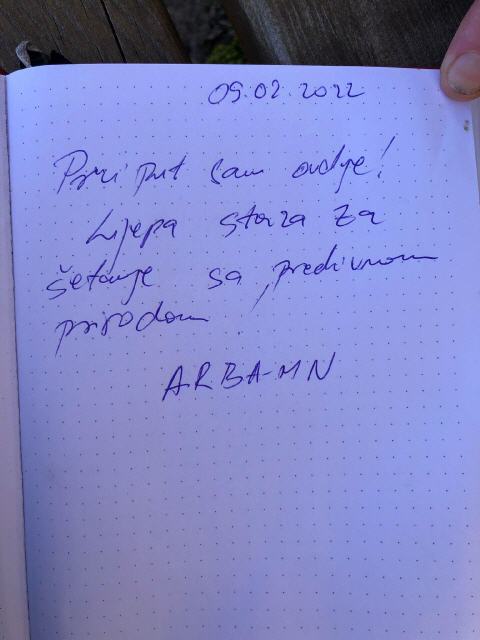 09.02.2022
Prvi put sam ovdje!
Lijepa staza za
šetanje sa predivnom
prirodom
ARBA-MN